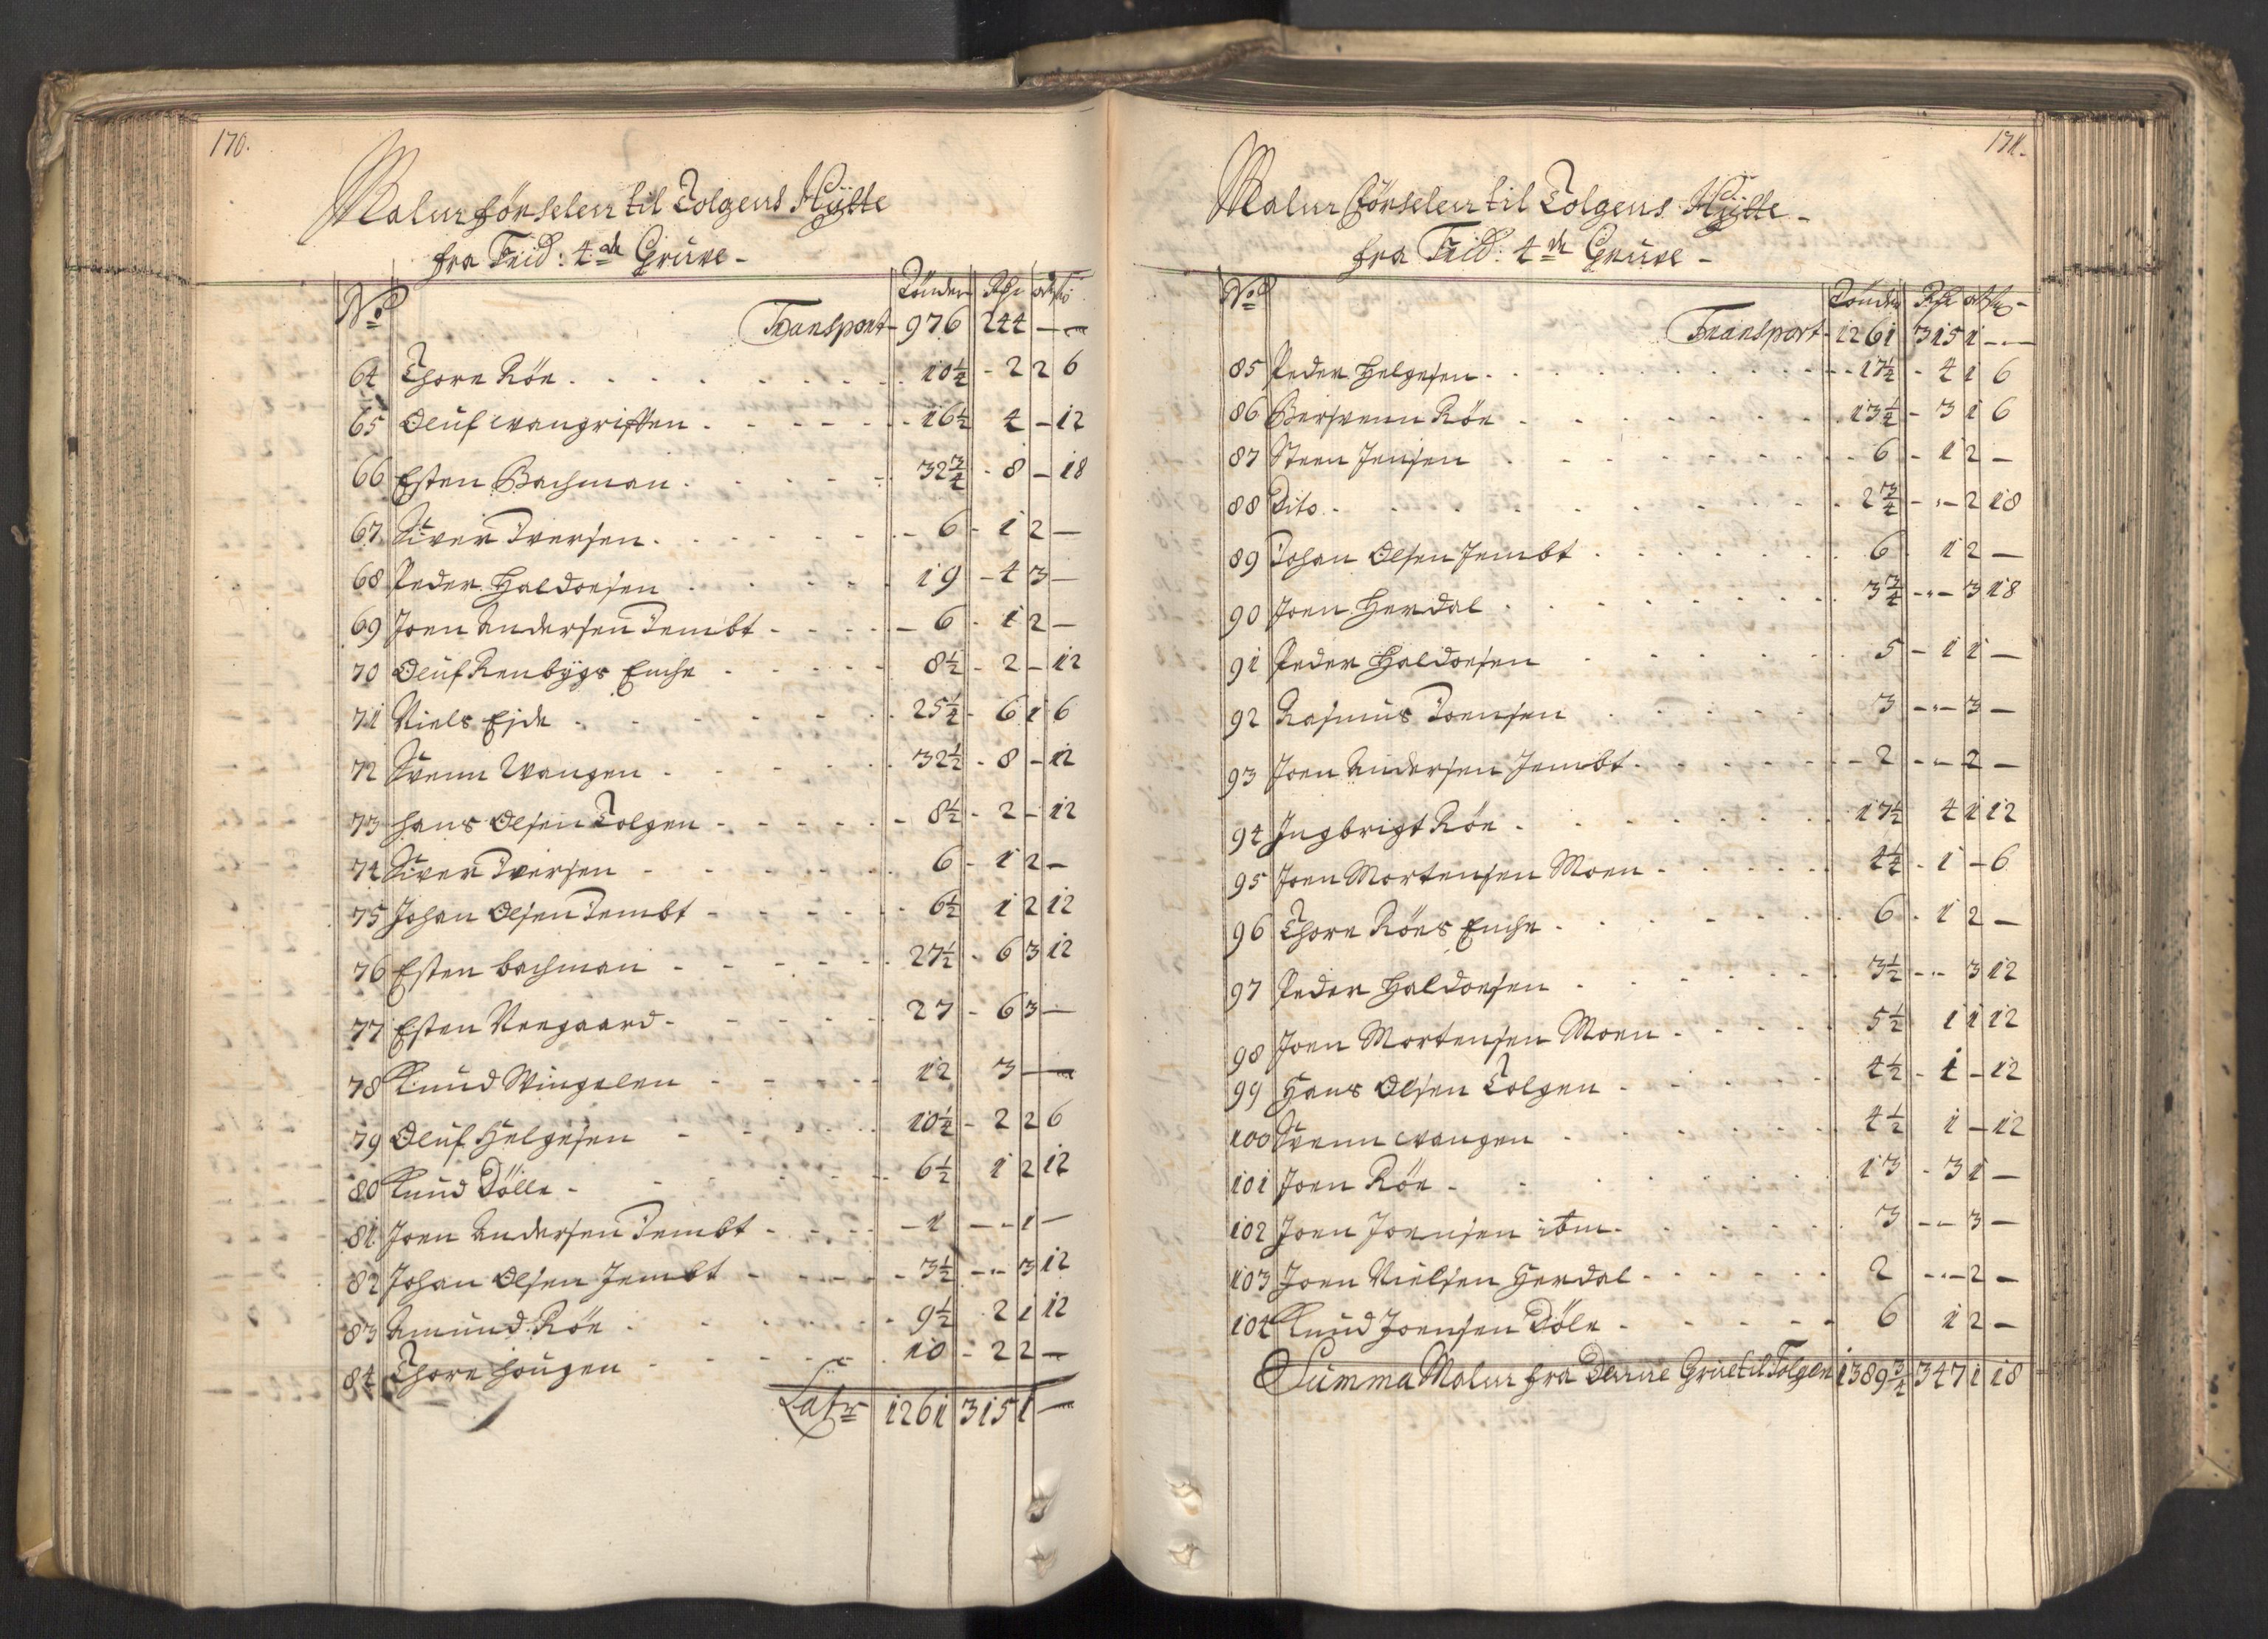 170.
Malm förselen til Tolgens Hÿtte
fra Frid: 4de Grúve -
No Tönder Rdr ort ß
Transport - 976 244 - -
64 Thore Röe 10 1/4 - 2 2 6
65 Oluf wangrösten 16 1/2 4 - 12
66 Esten Bachman 32 3/4 - 8 - 18
67 Siver Iversen 6 - 1 2 -
68 Peder Haldorsen 19 - 4 3 -
69 Joen Andersen Jembt 6 - 1 2 -
70 Oluf Kenbÿgs Enche 8 1/2 - 2 - 12
71 Niels Eide 25 1/4 - 6 1 6
72 Svenn Wangen 32 1/2 - 8 - 12
73 Hans Olsen Tolgen 8 1/2 - 2 - 12
74 Siver Iversen 6 - 1 2 -
75 Johan Olsen Jembt 6 1/2 1 2 12
76 Esten bachman 27 1/2 - 6 3 12
77 Esten Nregaard 27 - 6 3 -
78 Knud Vingelen 12 3 - -
79 Oluf Helgesen 10 1/4 - 2 2 6
80 Knud Dölle 6 1/2 1 2 12
81 Joen Andersen Jembt 1 - - 1 -
82 Johan Olsen Jembt 3 1/2 - - 3 12
83 Amund Röe 9 1/2 2 1 12
84 Thore Hougen 10 - 2 2 -
Latr 1261 315 1 -
171.
Malm förselen til Tolgens Hÿtte -
fra Frid: 4de Grúve -
No Tönder Rdr ort ß -
Transport - 1261 315 1 - -
85 Peder Helgesen 17 1/4 - 4 1 6
86 Bersvenn Röe 13 1/4 - 3 1 6
87 Steen Jensen 6 - 1 2 -
88 Dito 2 3/4 - - 2 18
89 Johan Olsen Jembt 6 1 2 -
90 Joen Herdal 3 3/4 - - 3 18
91 Peder Haldorsen 5 - 1 1 -
92 Rasmus Joensen 3 - - 3 -
93 Joen Andersen Jembt 2 - - 2 -
94 Ingbrigt Röe 17 1/2 4 1 12
95 Joen Mortensen Moen 4 1/4 - 1 - 6
96 Thore Röes Enche 6 - 1 2 -
97 Peder Haldorsen 3 1/2 - - 3 12
98 Joen Mortensen Moen 5 1/2 1 1 12
99 Hans Olsen Tolgen 4 1/2 - 1 - 12
100 Svenn wangen 4 1/2 1 - 12
101 Joen Röe 13 - 3 1 -
102 Joen Joensen ibm 3 - - 3 -
103 Joen Nielsen Herdal 2 - - 2 -
104 Knud Joensen Döle 6 1 2 -
Summa Malm fra Denne Grue til Tolgen 1389 3/4 347 1 18